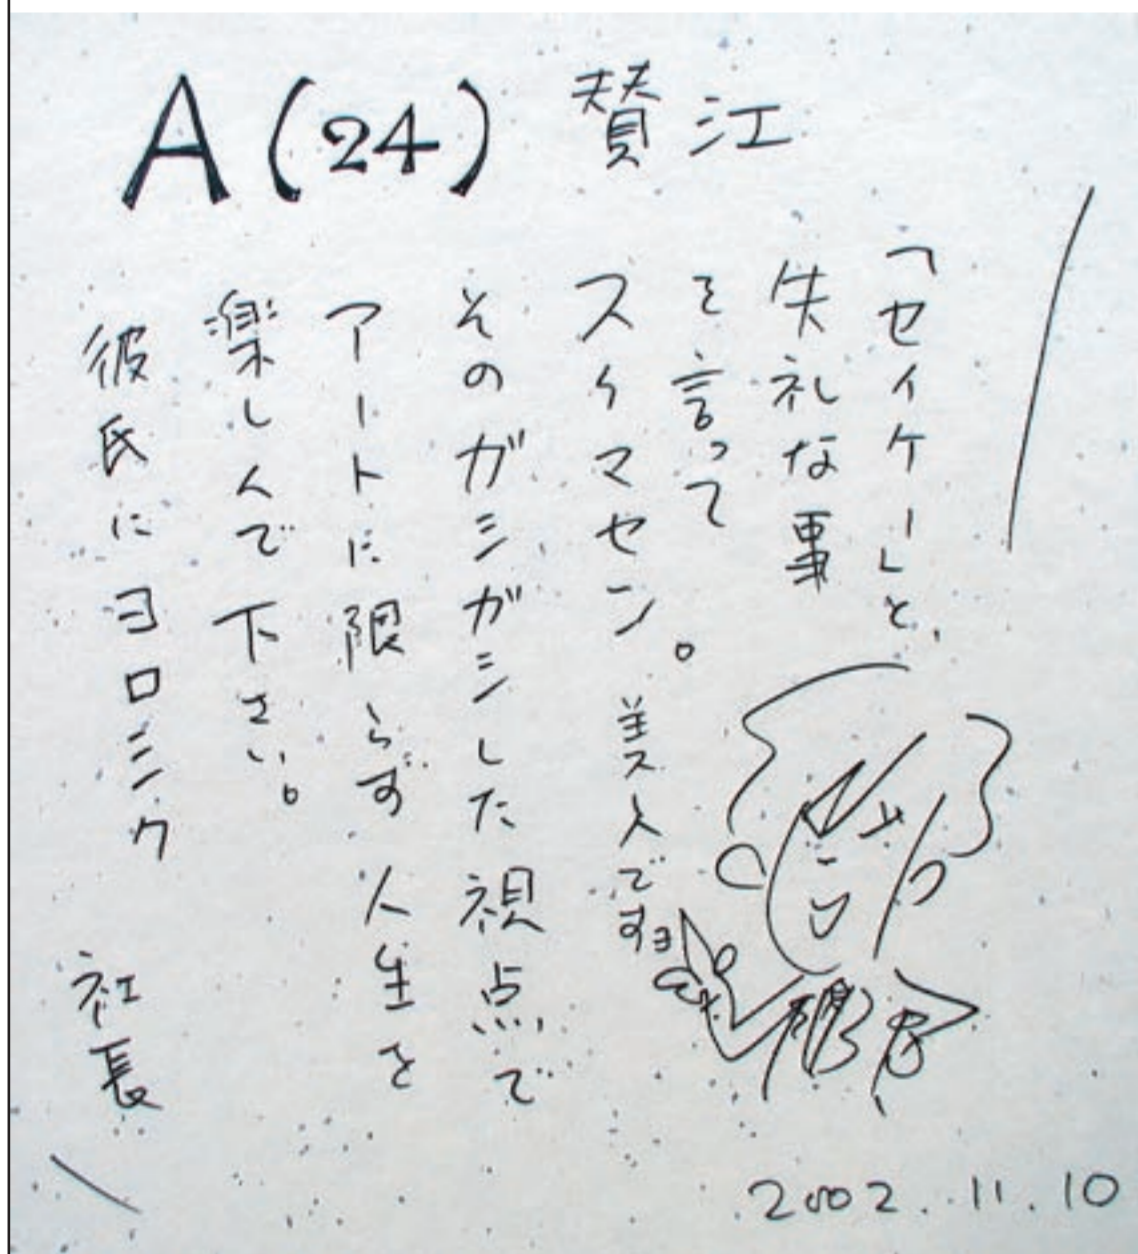 A(24) 賛江
「セイケー」と、
失礼な事
を言って
スイマセン。美人ですョ
そのガシガシした視点で
アートに限らず人生を
楽しんで下さい。
彼氏にヨロシク
社長
2002.11.10